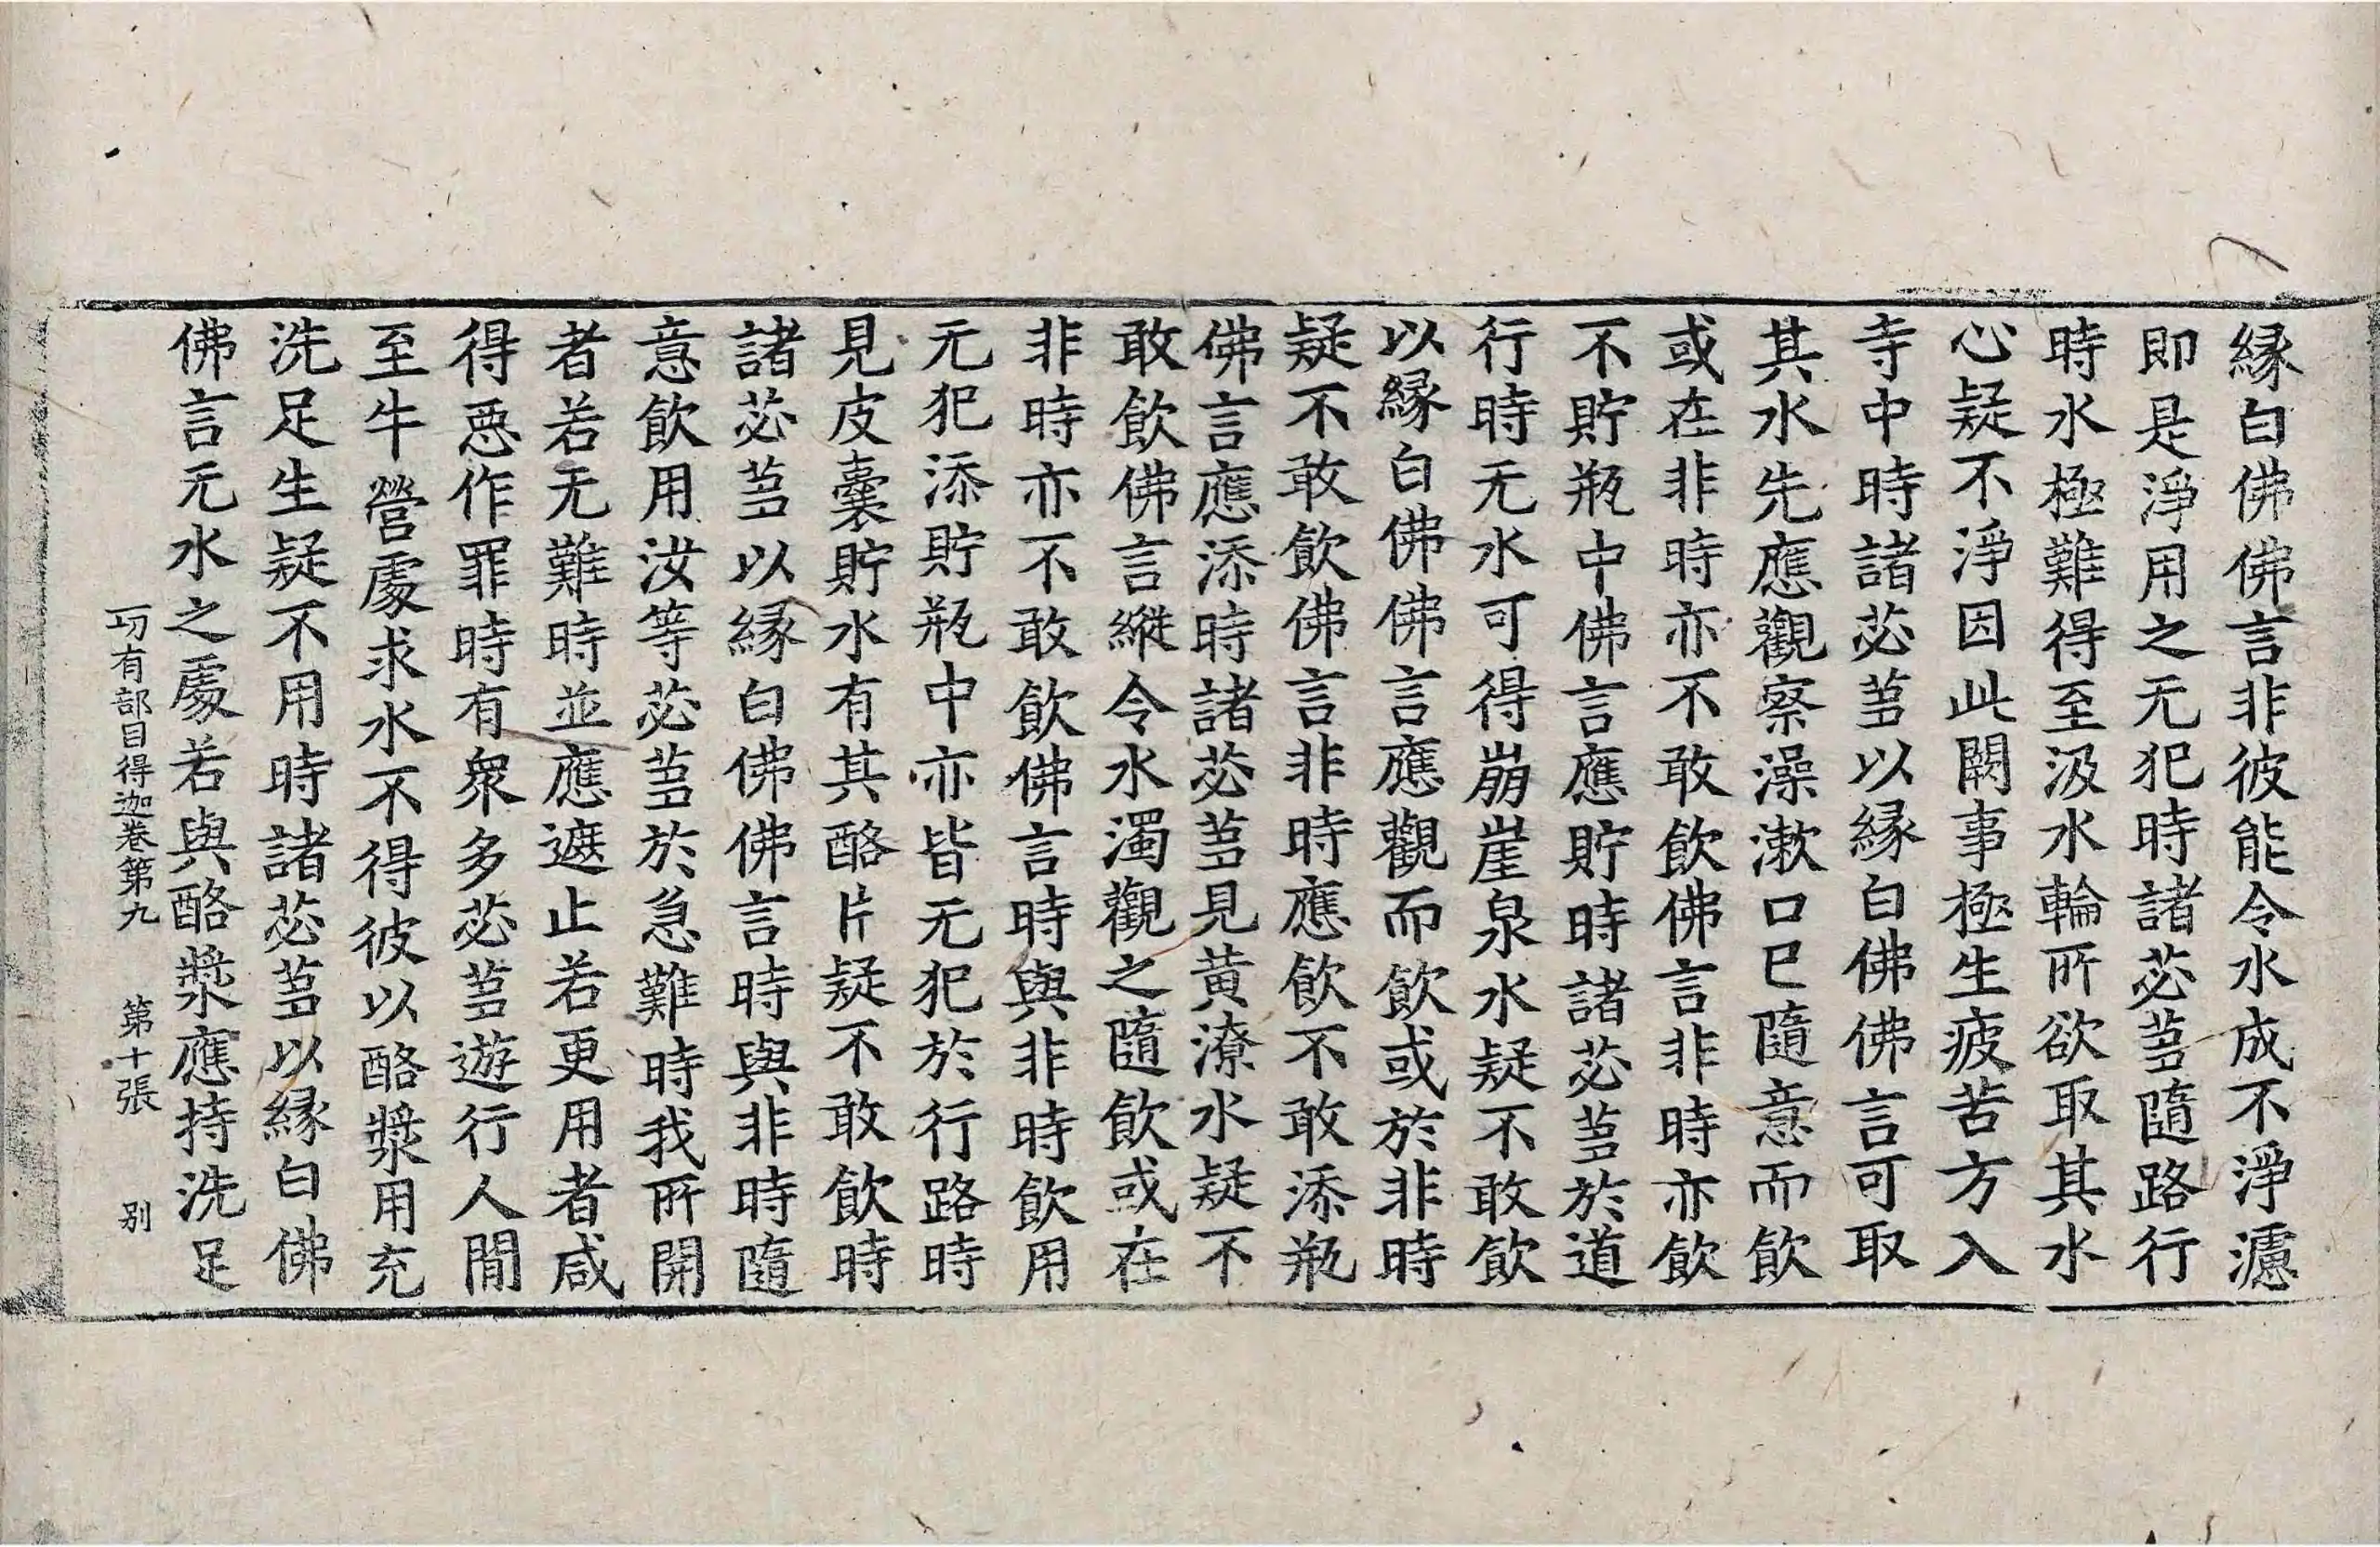 縁白佛佛言非彼能令水成不淨濾
即是淨用之无犯時諸苾芻隨路行
時水極難得至汲水輪所欲取其水
心疑不淨因此闕事極生疲苦方入
寺中時諸苾芻以縁白佛佛言可取
其水先應觀察澡漱口已隨意而飲
或在非時亦不敢飲佛言非時亦飲
不貯瓶中佛言應貯時諸苾芻於道
行時无水可得崩崖泉水疑不敢飲
以縁白佛佛言應觀而飲或於非時
疑不敢飲佛言非時應飲不敢添瓶
佛言應添時諸苾芻見黃潦水疑不
敢飲佛言縱令水濁觀之隨飲或在
非時亦不敢飲佛言時與非時飲用
无犯添貯瓶中亦皆无犯於行路時
見皮囊貯水有其酪片疑不敢飲時
諸苾芻以縁白佛佛言時與非時隨
意飲用汝等苾芻於急難時我所開
者若无難時並應遮止若更用者咸
得惡作罪時有衆多苾芻遊行人間
至牛營處求水不得彼以酪漿用充
洗足生疑不用時諸苾芻以縁白佛
佛言无水之處若與酪漿應持洗足
一切有部目得迦卷第九 第十張 别